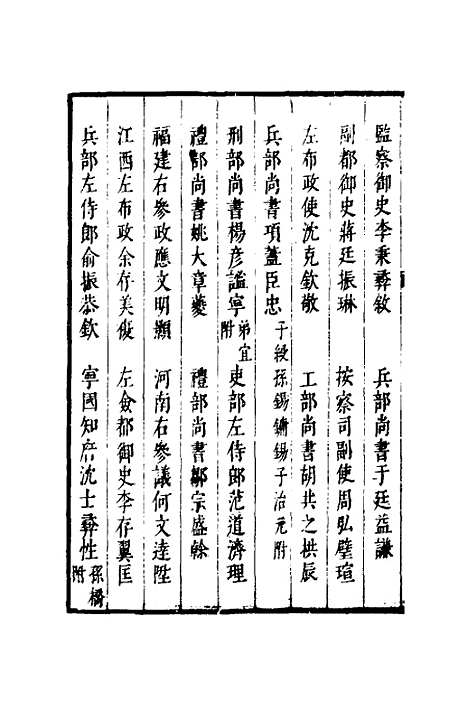 監察御史李秉彞敘　兵部尚書于廷益謙
副都御史蔣廷振琳　按察司副使周弘璧瑄
左布政使沈克欽敬　工部尚書胡共之拱辰
兵部尚書項藎臣忠　子綬孫錫鏞錫子治元附
刑部尚書楊彦謐寧弟宜附　吏部左侍郎范道濟理
禮部尚書姚大章夔　禮部尚書鄒宗盛幹
福建右參政應文明顥　河南右參議何文達陞
江西左布政余存美俊　左僉都御史李存翼匡
兵部左侍郎俞振恭欽　寧國知府沈士彞性孫橋附